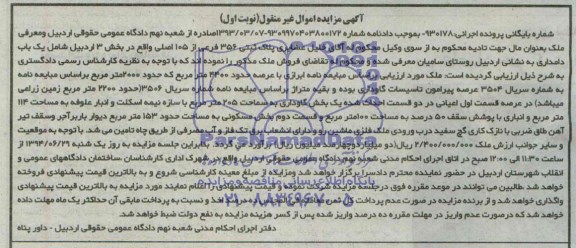 آگهی مزایده اموال غیر منقول(نوبت اول)
شماره بایگانی پرونده اجرائی:۹۳۰۱۷۸- بموجب دادنامه شماره ۹۳۰۹۹۷۰۴۰۳۸۰۰۱۷۲-۱۳۹۳/۰۳/۰۷صادره از شعبه نهم دادگاه عمومی حقوقی اردبیل ومعرفی
ملک بعنوان مال جهت تادیه محکوم به از سوی وکیل محکوم له آقای پلاک ثبتی ۳۵۶ فرعی از ۱۰۵ اصلی واقع در بخش ۳ اردبیل شامل یک باب
دامداری به نشانی اردبیل روستای سامیان معرفی شده و محکوم له تقاضای فروش ملک مذکور را نموده اند که با توجه به نظریه کارشناس رسمی دادگستری
به شرح ذیل ارزیابی گردیده است. ملک مورد ارزیابی براساس مبایعه نامه ابرازی با عرصه حدود ۴۴۰۰ متر مربع که حدود ۲۰۰۰متر مربع براساس مبایعه نامه
به شماره سریال ۳۵۰۴ عرصه پیرامون تاسیسات گاوداری بوده و بقیه متراژ براساس مبایعه نامه شماره سریال ۳۵۰۶(حدود ۲۲۰۰ متر مربع زمین زراعی
میباشد) در عرصه قسمت اول اعیانی در دو قسمت احداث شده یک بخش گاوداری به مساحت ۲۰۵ متر مربع با سازه نیمه اسکلت و انبار علوفه به مساحت ۱۱۴
متر مربع و انباری با پوشش سقف ۵۰ درصد به مساحت ۱۰۰متر مربع و قسمت دوم بخش مسکونی به مساحت حدود ۱۵۳ متر مربع دیوار باربر آجر وسقف تیر
آهن طاق ضربی با نازک کاری گچ سفید درب ورودی ملک نفررو ماشین رو ودارای انشعاب برق تک فاز و آب مصرفی از طریق چاه تامین می شد. با توجه به موقعیت
و سایر جوانب ارزش ملک ۲/۴۰۰/۰۰۰/۰۰۰ ریال(دو میلیاردوچهارصد میلیون ریال) برآورد می گردد. بنابراین جلسه مزایده به روز یک شنبه ۱۳۹۴/۰۶/۲۹ از
ساعت ۱۱:۳۰ الی ۱۲:۰۰ صبح در اتاق اجرای احکام مدنی شعبه نهم دادگاه عمومی حقوقی اردبیل واقع در شهرک اداری کارشناسان ،ساختمان دادگاههای عمومی و
انقلاب شهرستان اردبیل در حضور نماینده محترم دادسرا برگزار خواهد شد ومزایده از مبلغ معینه کارشناسی شروع و به بالاترین قیمت پیشنهادی فروخته
خواهد شد .طالبین می توانند در موعد مقرره فوق درجلسه مزایده شرکت نموده و قیمت پیشنهادی را اعلام نمایند مورد مزایده به بالاترین قیمت پیشنهادی
واگذاری خواهد شد و از برنده مزایده در صورت عدم پرداخت کل ثمن ده درصد اخذ و نسبت به پرداخت مابقی آن حداکثر یک ماه مهلت داده
خواهد شد که درصورت عدم واریز در مهلت مقرره ده درصد واریز شده پس از کسر هزینه مزایده به نفع دولت ضبط خواهد شد.
دفتر اجرای احکام مدنی شعبه نهم دادگاه عمومی حقوقی اردبیل - داور پناه